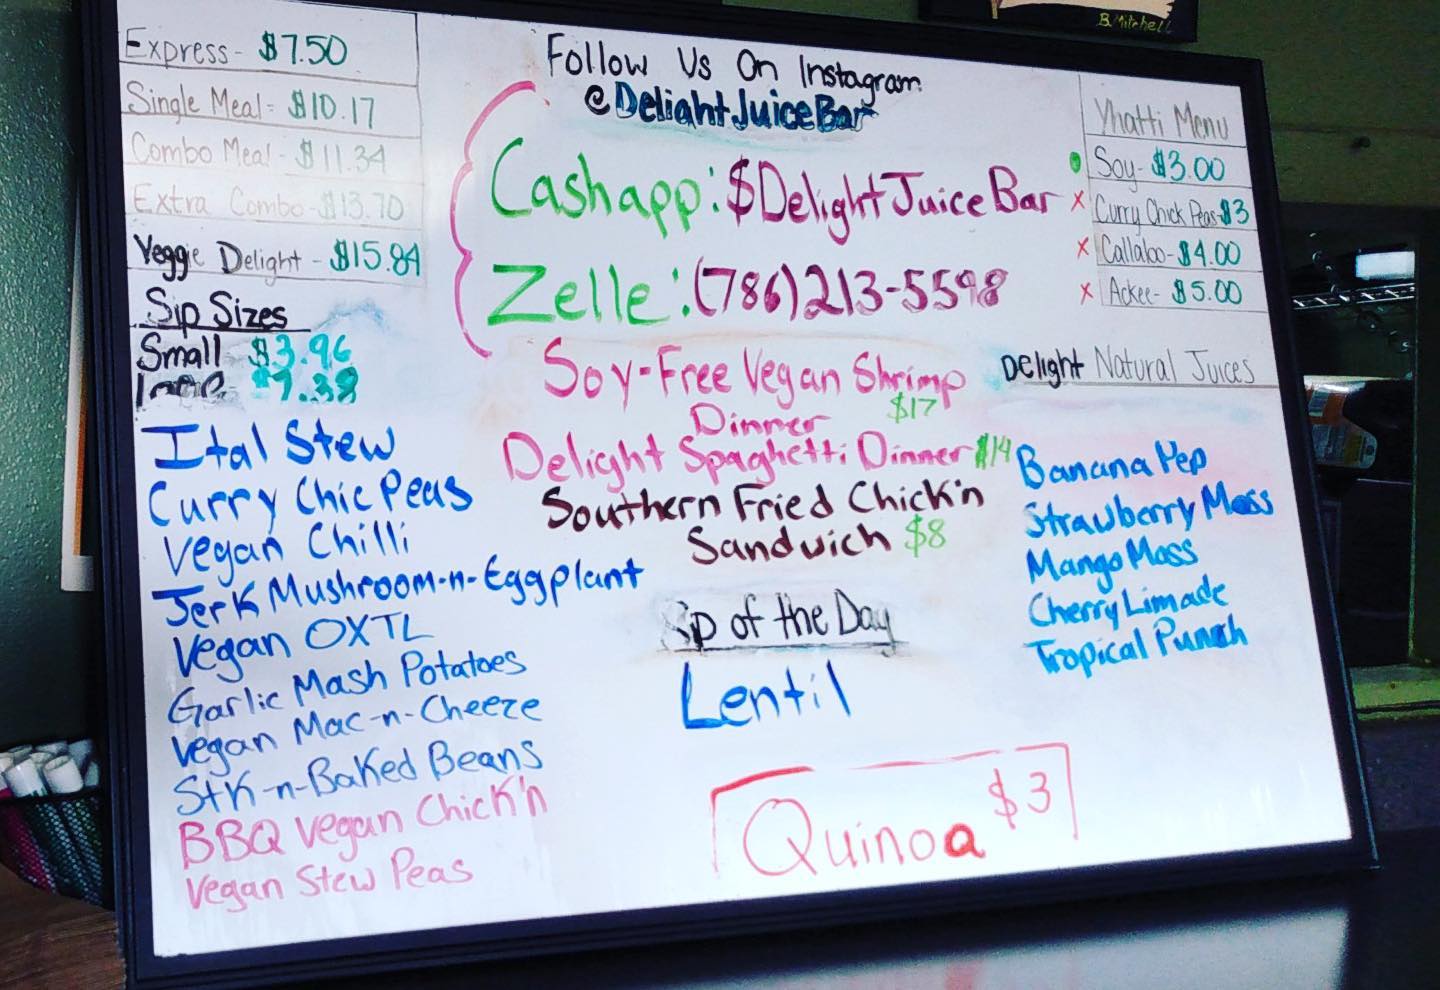 B. Mitchell
Express- $7.50
Single Meal- $10.17
Combo Meal- $11.34
Extra Combo- $13.70
Veggie Delight- $15.84
Sip Sizes
Small $3.96
Follow Us On Instagram
@DelightJuiceBar
Cashapp: $DelightJuiceBar
Zelle: (786)213-5598
Yhatti Menu
Soy- $3.00
x Curry Chick Peas- $3
x Callaloo- $4.00
x Ackee- $5.00
Ital Stew
Curry Chic Peas
Vegan Chilli
Jerk Mushroom-n-Eggplant
Vegan OXTL
Garlic Mash Potatoes
Vegan Mac-n-Cheeze
Stk-n-Baked Beans
BBQ Vegan Chick'n
Vegan Stew Peas
Soy-Free Vegan Shrimp
Dinner $17
Delight Spaghetti Dinner $14
Southern Fried Chick'n
Sandwich $8
Sip of the Day
Lentil
Quinoa $3
Delight Natural Juices
Banana Pep
Strawberry Moss
Mango Moss
Cherry Limade
Tropical Punch